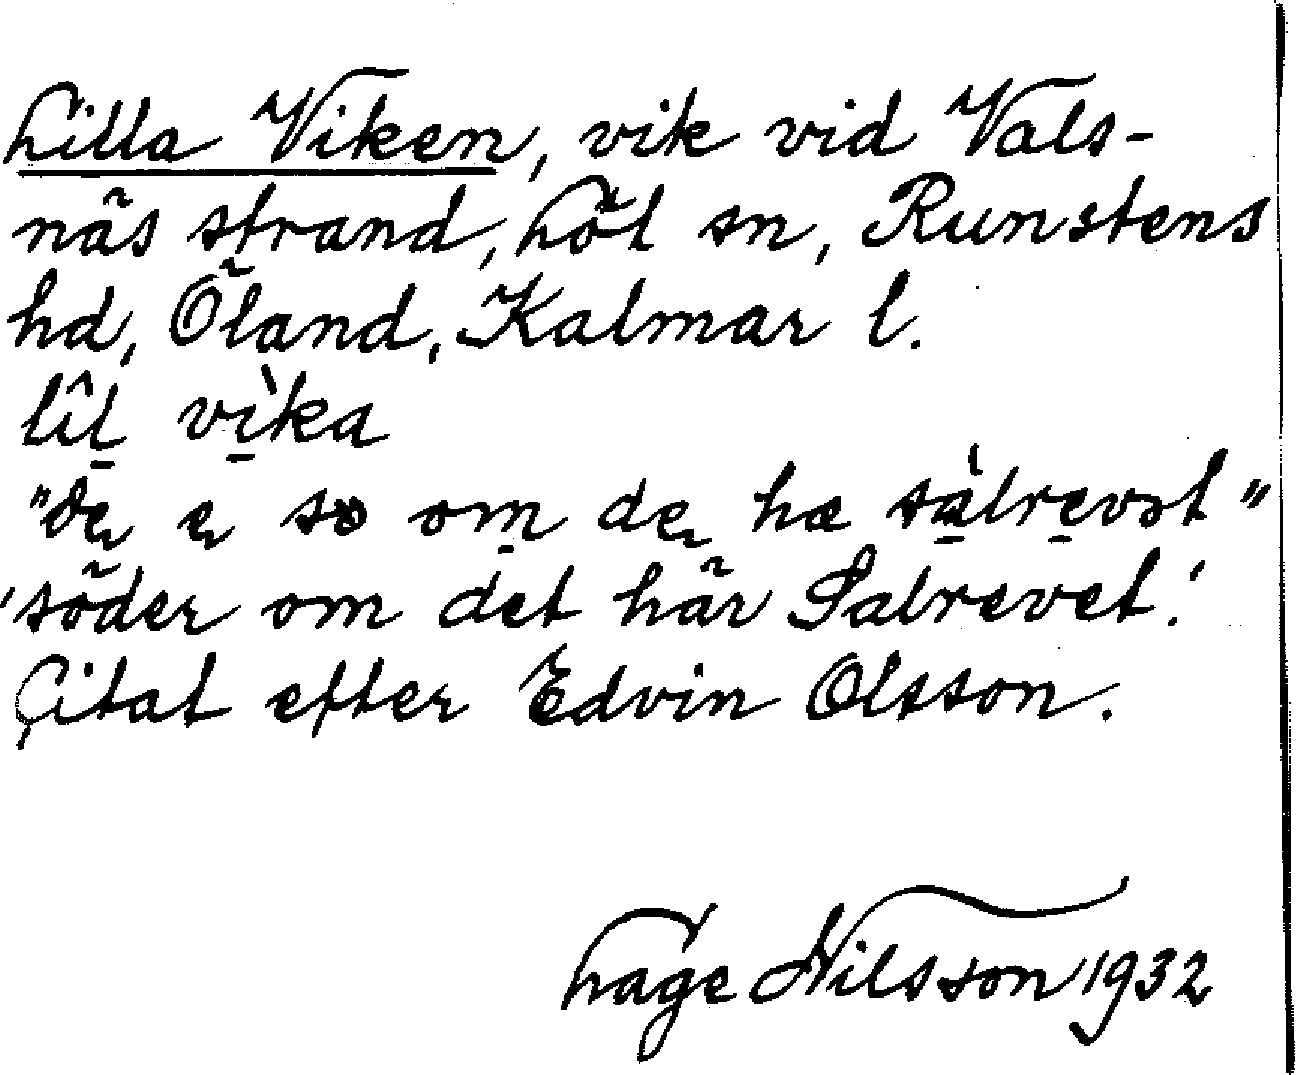 Lilla Viken, vik vid Vals-
näs strand, Löt sn, Runstens
hd, Öland, Kalmar l.
lîl vìka
"de e so om de hæ sàlrevət"
'söder om det här Salrevet.'
Citat efter Edvin Olsson.
Hage Nilsson 1932